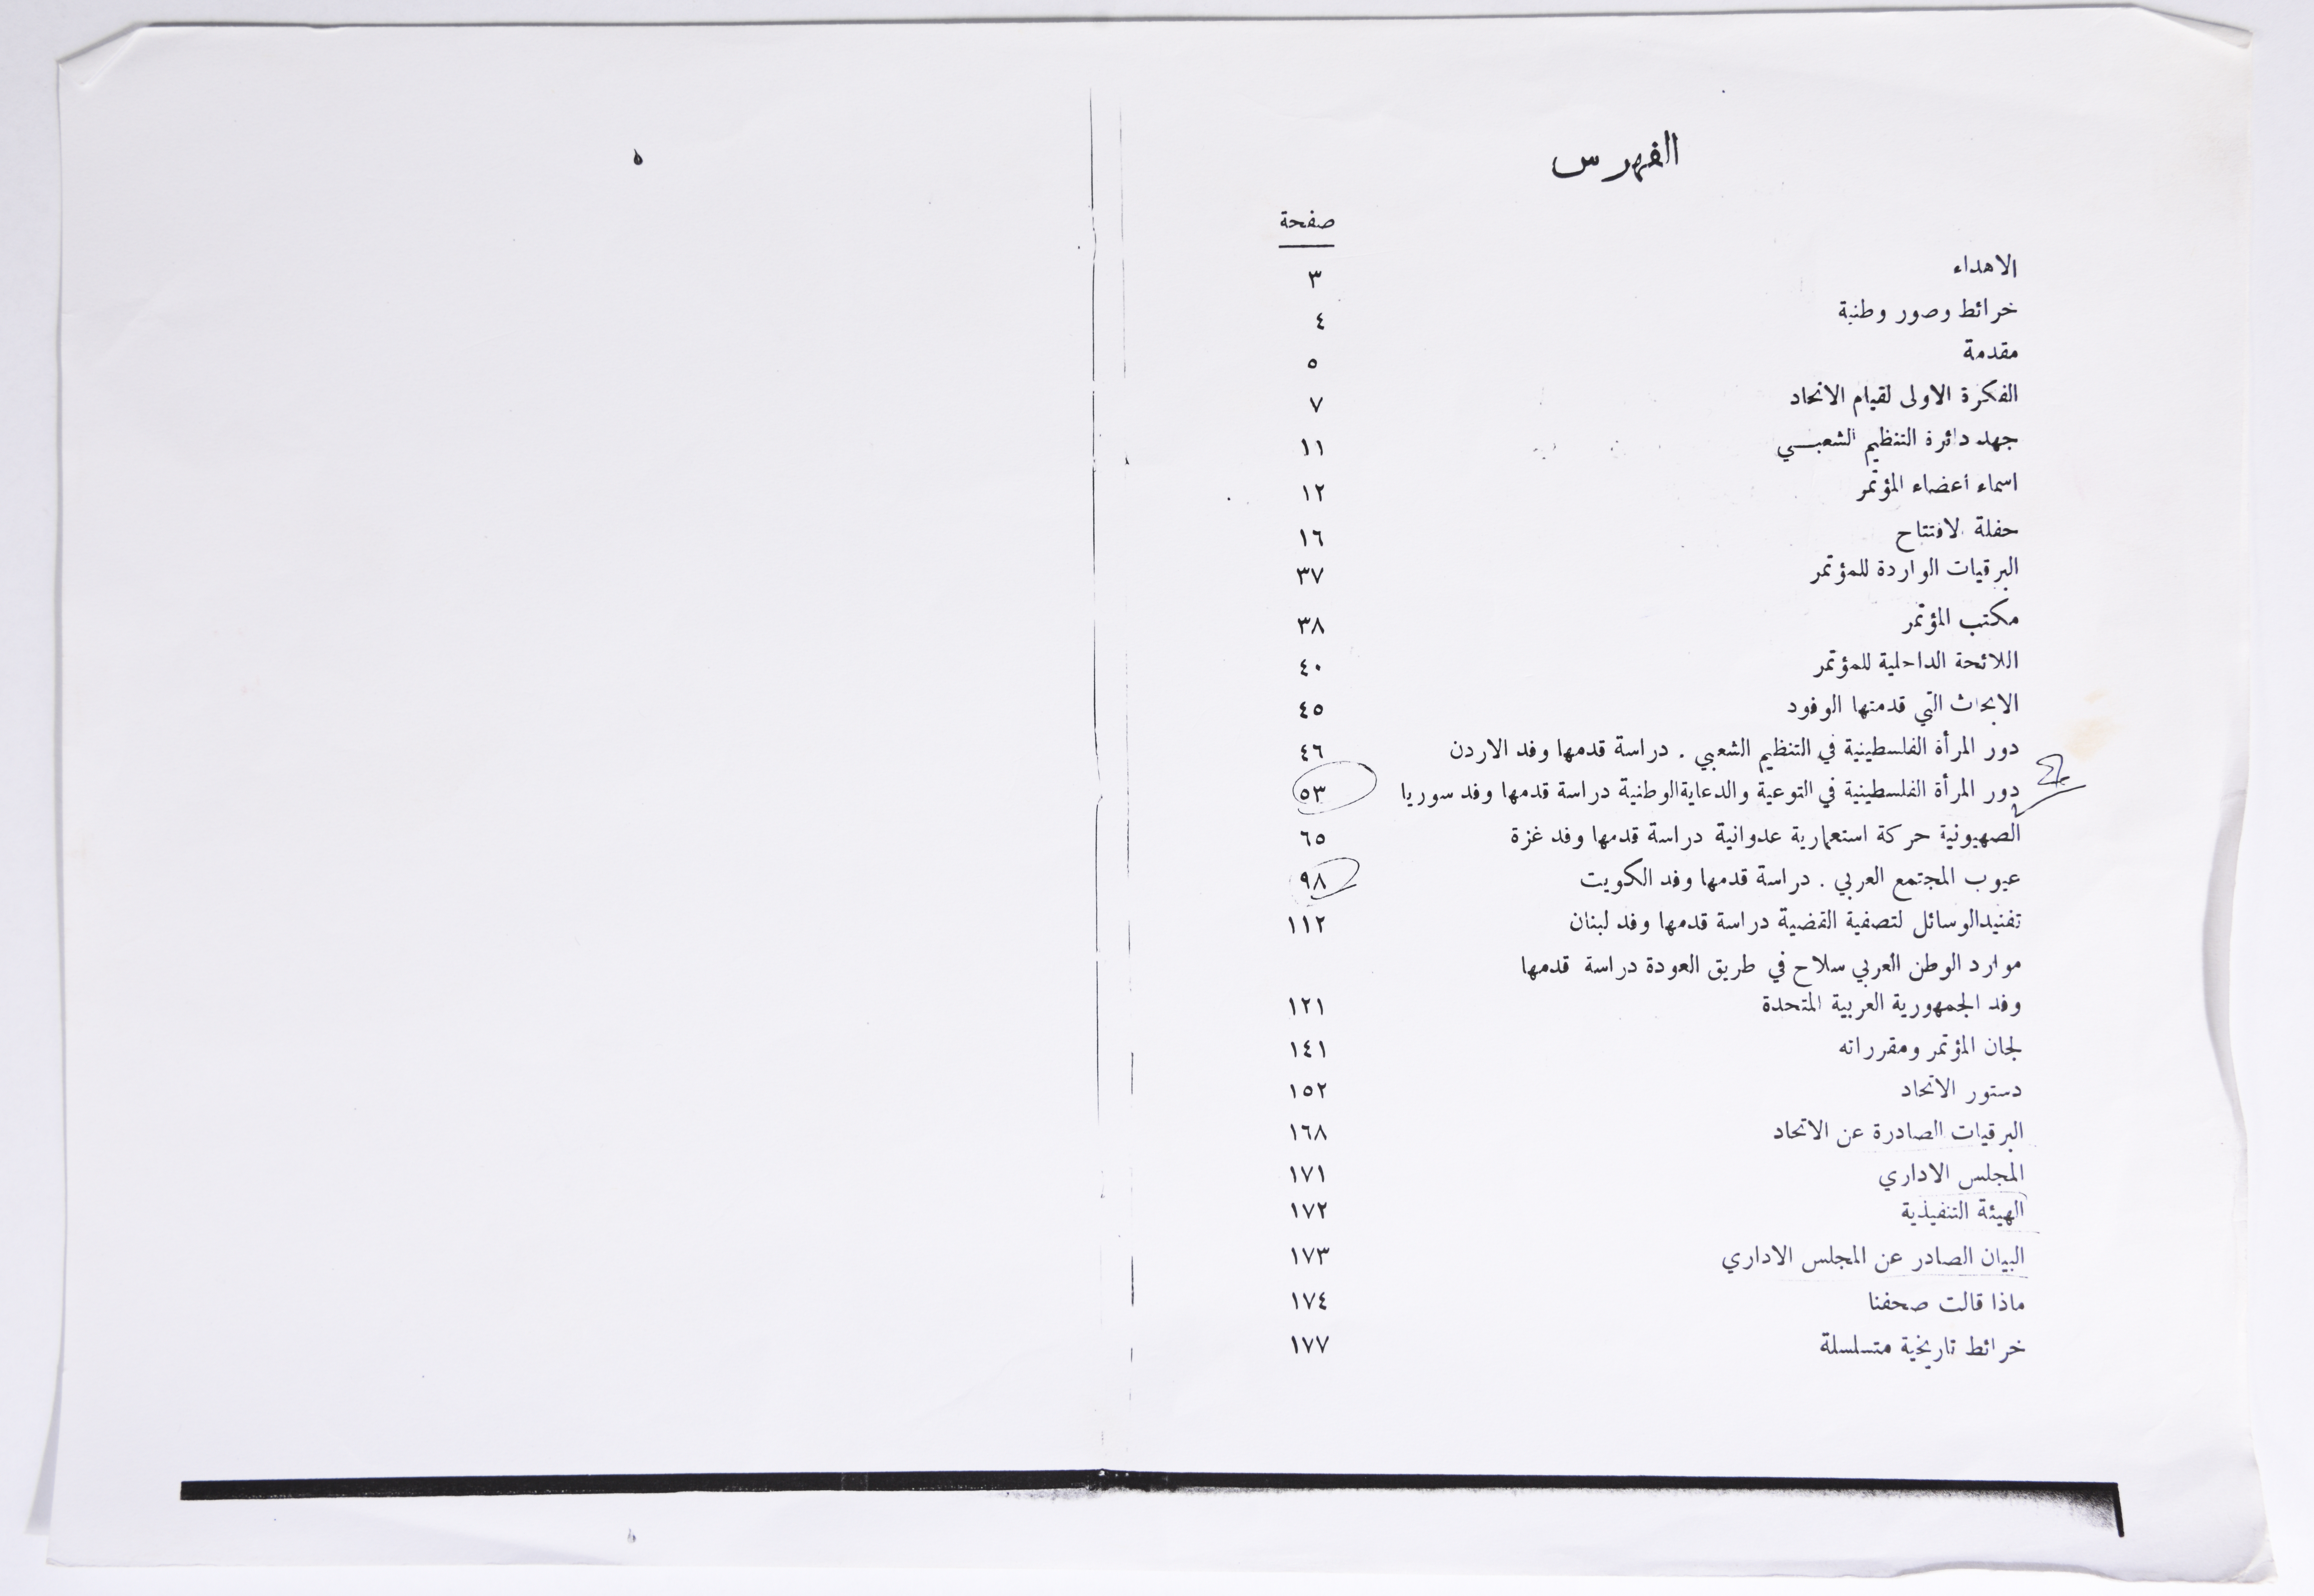 الفهرس
صفحة
الاهداء ٣
خرائط وصور وطنية ٤
مقدمة ٥
الفكرة الاولى لقيام الاتحاد ٧
جهد دائرة التنظيم الشعبي ١١
اسماء أعضاء المؤتمر ١٢
حفلة الافتتاح ١٦
البرقيات الواردة للمؤتمر ٣٧
مكتب المؤتمر ٣٨
اللائحة الداخلية للمؤتمر ٤٠
الابحاث التي قدمتها الوفود ٤٥
دور المرأة الفلسطينية في التنظيم الشعبي . دراسة قدمها وفد الاردن ٤٦
دور المرأة الفلسطينية في التوعية والدعاية الوطنية دراسة قدمها وفد سوريا ٥٣
الصهيونية حركة استعمارية عدوانية دراسة قدمها وفد غزة ٦٥
عيوب المجتمع العربي . دراسة قدمها وفد الكويت ٩٨
تفنيد الوسائل لتصفية القضية دراسة قدمها وفد لبنان ١١٢
موارد الوطن العربي سلاح في طريق العودة دراسة قدمها
وفد الجمهورية العربية المتحدة ١٢١
لجان المؤتمر ومقرراته ١٤١
دستور الاتحاد ١٥٢
البرقيات الصادرة عن الاتحاد ١٦٨
المجلس الاداري ١٧١
الهيئة التنفيذية ١٧٢
البيان الصادر عن المجلس الاداري ١٧٣
ماذا قالت صحفنا ١٧٤
خرائط تاريخية متسلسلة ١٧٧